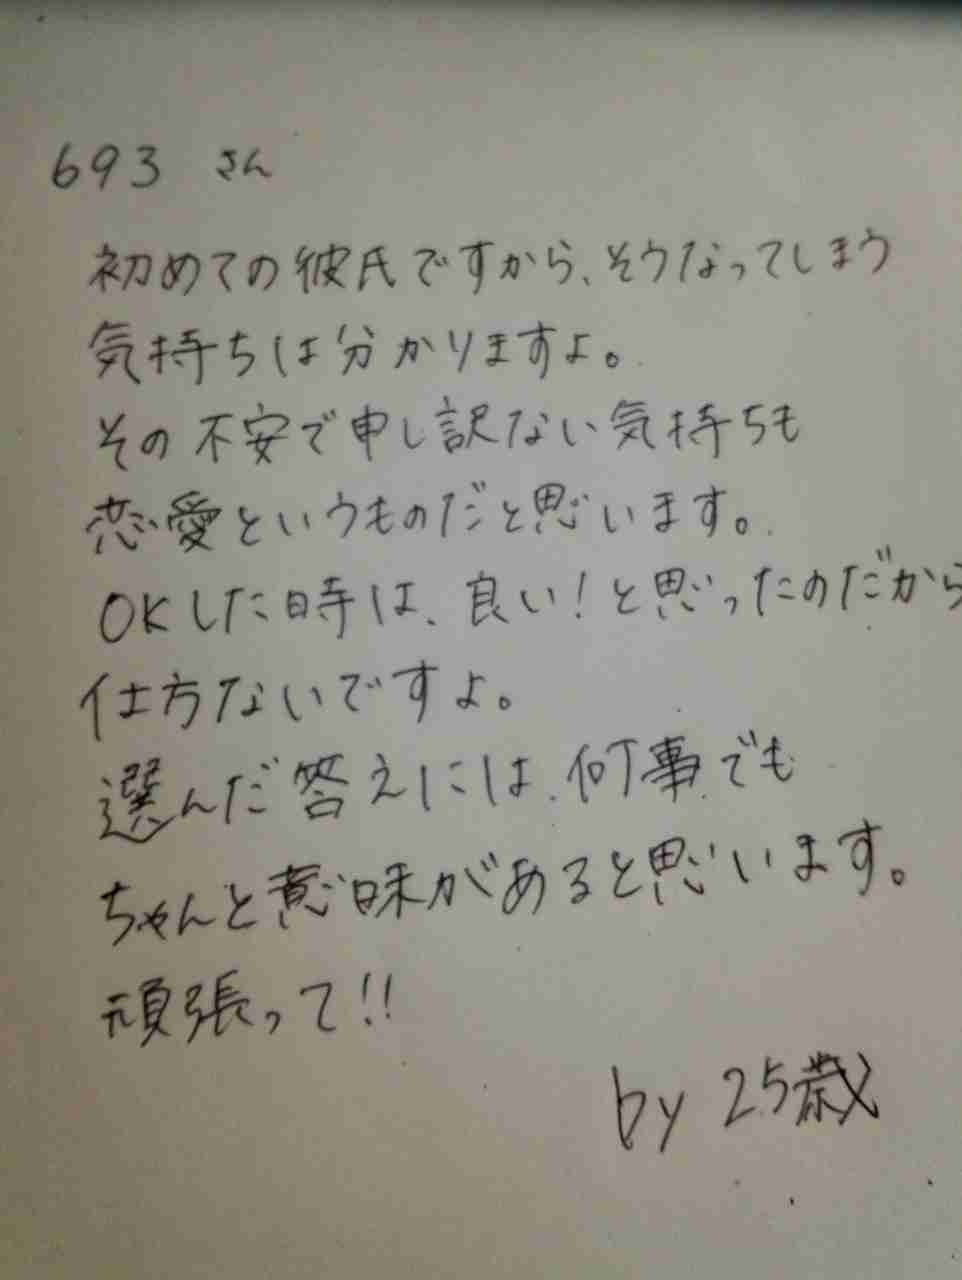 693 さん
初めての彼氏ですから、そうなってしまう
気持ちは分かりますよ。
その不安で申し訳ない気持ちも
恋愛というものだと思います。
OKした時は、良い！と思ったのだから
仕方ないですよ。
選んだ答えには、何事でも
ちゃんと意味があると思います。
頑張って!!
by 25歳